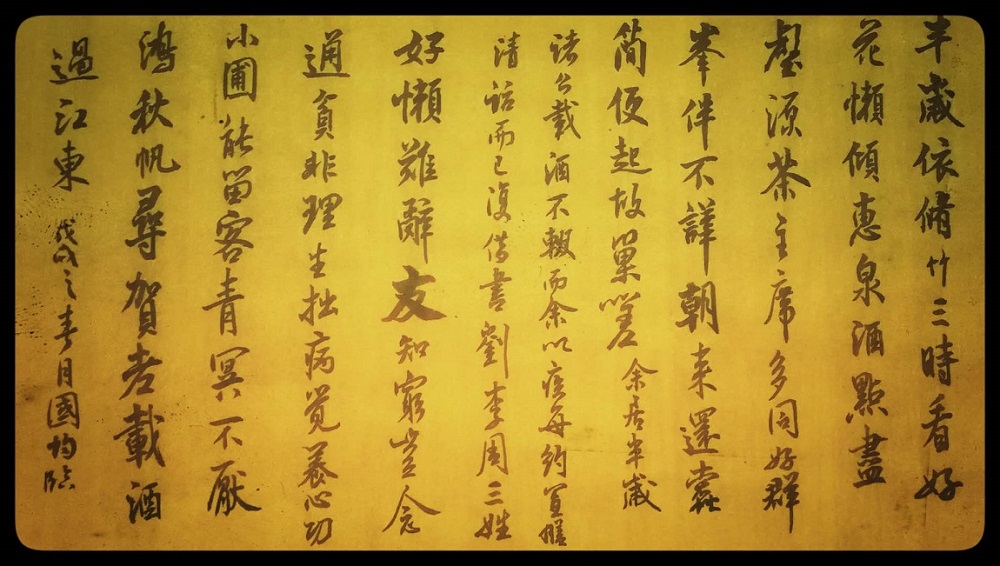 半歲依脩竹三時看好
花懶傾惠泉酒點盡
壑源茶主席多同好群
峯伴不譁朝来還蠹
簡便起故巢嗟余居半歲
諸公載酒不輟而余以疾每約置膳
清話而已復借書劉李周三姓
好懶難辭友知窮豈念
通貧非理生拙病覺養心功
小圃能留客青冥不厭
鴻秋帆尋賀老載酒
過江東戊戌之春月國均臨